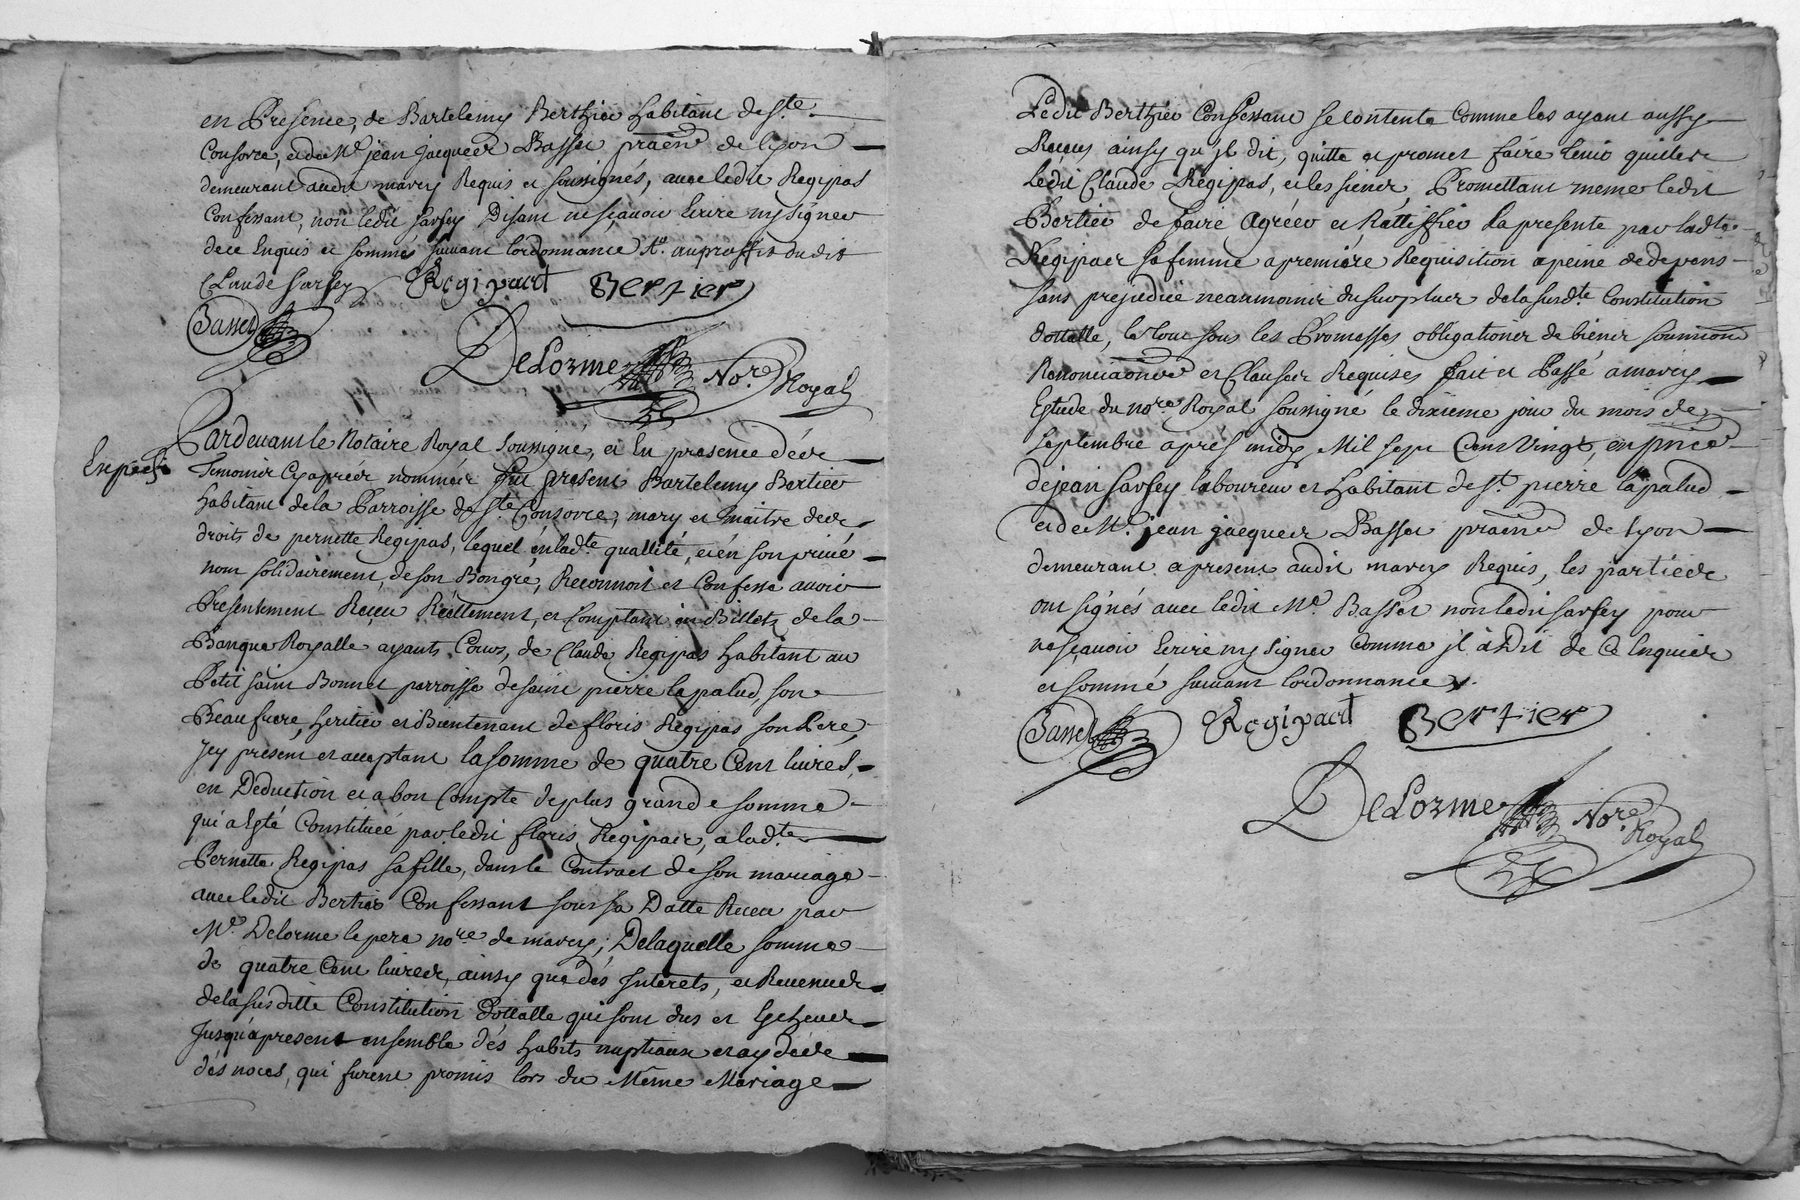 en Presence, de Bartelemy Berthier habitant de Ste
Consorce, et de Me jean Jacques Basset praen de lyon
demeurant audit marcy Requis et soussignés, avec ledit Regipas
Confessant, non ledit sarsey Disant ne sçavoir Ecrire ny signer
de ce Enquis et sommés suivant lordonnance au proffit dudit
Claude sarsey Regipard Bertier
Basset
DeLorme Nore Royal
Pardevant le Notaire Royal soussigné, et En presence dés
Temoins Cy apres nommés fut present Bartelemy Bertier
habitant de la Parroisse de Ste Consorce, mary et maitre des
droits de pernette Regipas, lequel én ladte quallité, et én son privé
nom solidairement, de son Bongré, Reconnoit et Confesse avoir
Presentement Receu Réellement, et Comptant en Billets de la
Banque Royalle ayants Cours, de Claude Regipas habitant au
Petit saint Bonnet parroisse de saint pierre lapalud, son
Beaufrere, heritier et Bientenant de floris Regipas son Pere,
Jcy present et acceptant la somme de quatre Cent livres,
en Déduction et a bon Compte de plus grande somme
qui a Esté Constituée par ledit floris Regipas, a ladte
Pernette Regipas sa fille, dans le Contract de son mariage
avec ledit Bertier Confessant sous sa Datte Receu par
Me Delorme le pere nore de marcy; De laquelle somme
de quatre Cent livres, ainsy que dés Interets, et Revenus
de la susditte Constitution Dottalle qui sont dus et Escheus
Jusqu'apresent ensemble dés habits nuptiaux et aydes
dés noces, qui furent promis lors du Même Mariage
Ledit Berthier Confessant se contente Comme les ayant aussy
Receus ainsy qu'jl dit, quitte et promet faire tenir quitte
Ledit Claude Regipas, et les siens, Promettant meme ledit
Bertier de faire Agréer et Rattiffier la presente par ladte
Regipas sa femme a premiere Requisition a peine de depens
sans prejudice neanmoins du surplus de la susdte Constitution
dottalle, le tout sous les Promesses obligations de biens
Renonciations et Clauses Requises fait et Passé a marcy
Estude du nore Royal soussigné le dixieme jour du mois de
septembre aprés midy Mil sept Cent Vingt, en
de jean sarsey laboureur et habitant de St pierre lapalud
et de Me jean jacques Basset praen de lyon
demeurant a present audit marcy Requis, les parties
ont signés avec ledit Me Basset non ledit sarsey pour
ne sçavoir Ecrire ny signer Comme jl a Dit de Ce Enquis
et sommé suivant lordonnance
Basset Regipard Bertier
DeLorme Nore Royal